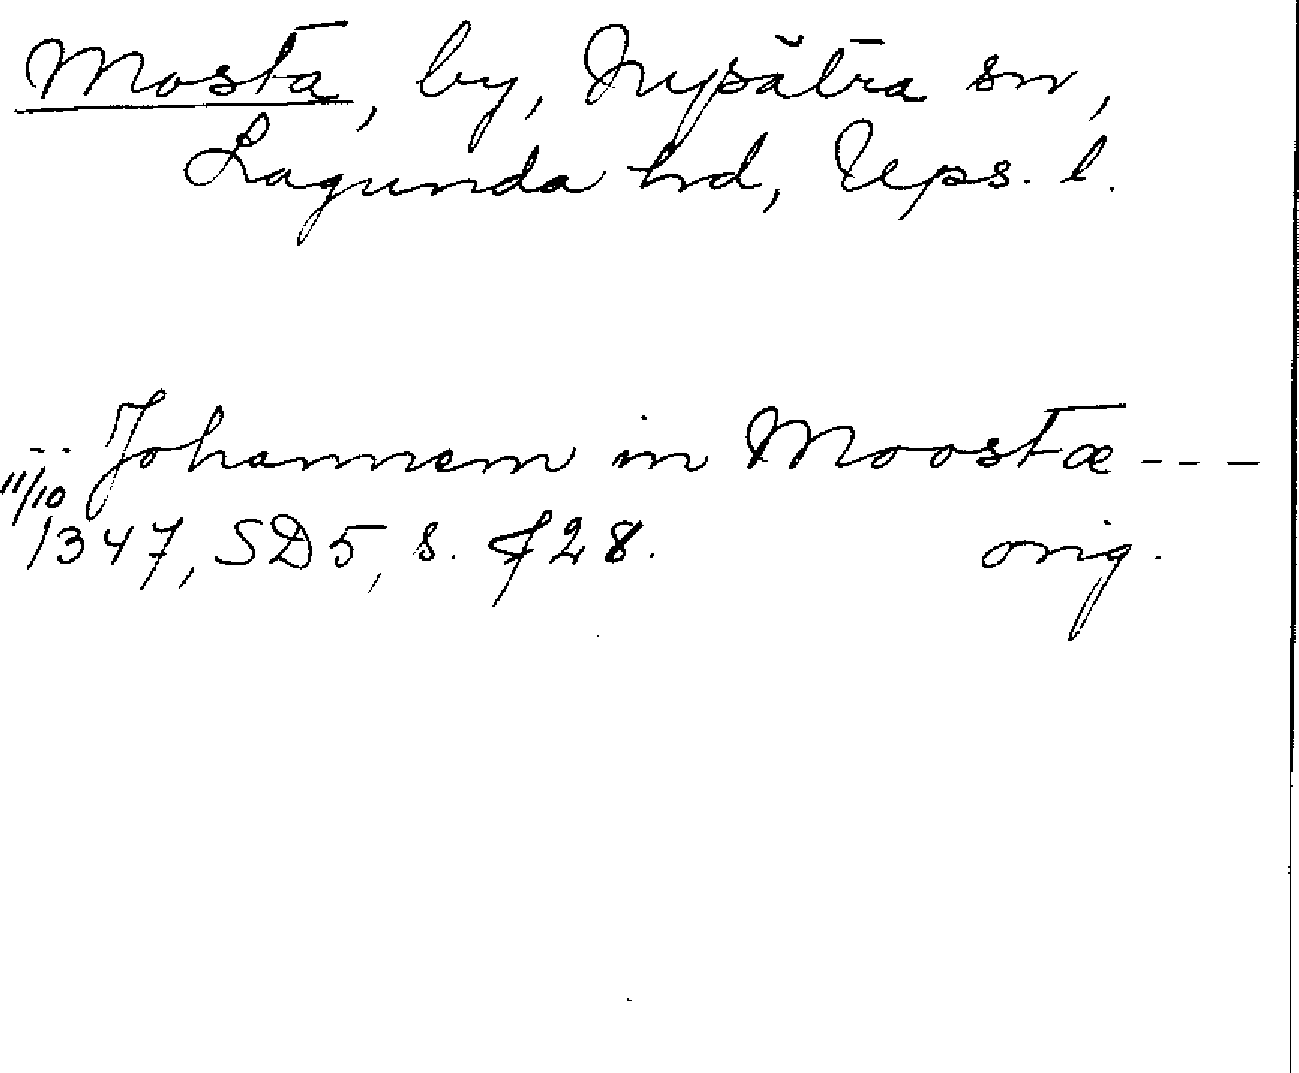 Mosta, by, Nysätra sn,
Lagunda hd, Ups. l.
... Johannem in Moostæ ---
11/10 1347, SD5, s. 728. orig.